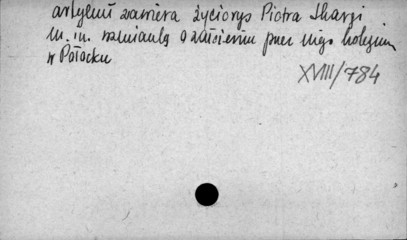 artykuł zawiera życiorys Piotra Skargi
m.in. wzmiankę o założeniu przez niego kolegium
w Połocku
XVIII/784